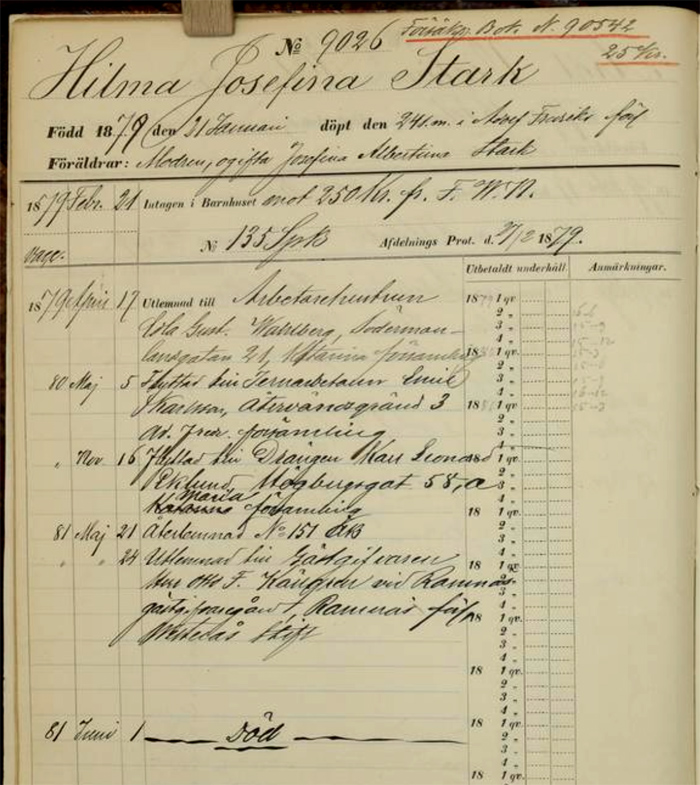 Försäkr. Bok. N. 90542
25 Kr.
№ 9026
Hilma Josefina Stark
Född 1879 den 21 Januari döpt den 24 s.m. i Adolf Fredriks förs
Föräldrar: Modren, ogifta Josefina Albertina Stark
1879 Febr. 21 Intagen i Barnhuset mot 250 Kr. fr. F. W. N.
№ 135 Afdelnings Prot. d. 21/2 1879.
Utbetaldt underhåll. Anmärkningar.
1879 April 17 Utlemnad till Arbetarehustrun
Gust. Wahlberg, Söderman-
landsgatan 21, Katarina församling
80 Maj 5 Flyttad till Jernarbetaren Emil
Karlsson, Återvändsgränd 3
Ad. Fredr. församling
" Nov. 16 Flyttad till Drängen Karl Leonard
Eklund, Högbergsgat 58, a
Maria
Katarina församling
81 Maj 21 Återlemnad № 151
" " 24 Utlemnad till Gästgifvaren
Otto F. vid Ramnäs
gästgifvaregård, Ramnäs förs
Westerås Stift
81 Juni 1 Död
1879 1 qv.
2 „
3 „
4 „
18 1 qv.
2 „
3 „
4 „
18 1 qv.
2 „
3 „
4 „
18 1 qv.
2 „
3 „
4 „
18 1 qv.
2 „
3 „
4 „
18 1 qv.
2 „
3 „
4 „
18 1 qv.
2 „
3 „
4 „
18 1 qv.
2 „
3 „
4 „
18 1 qv.
2 „
3 „
4 „
18 1 qv.